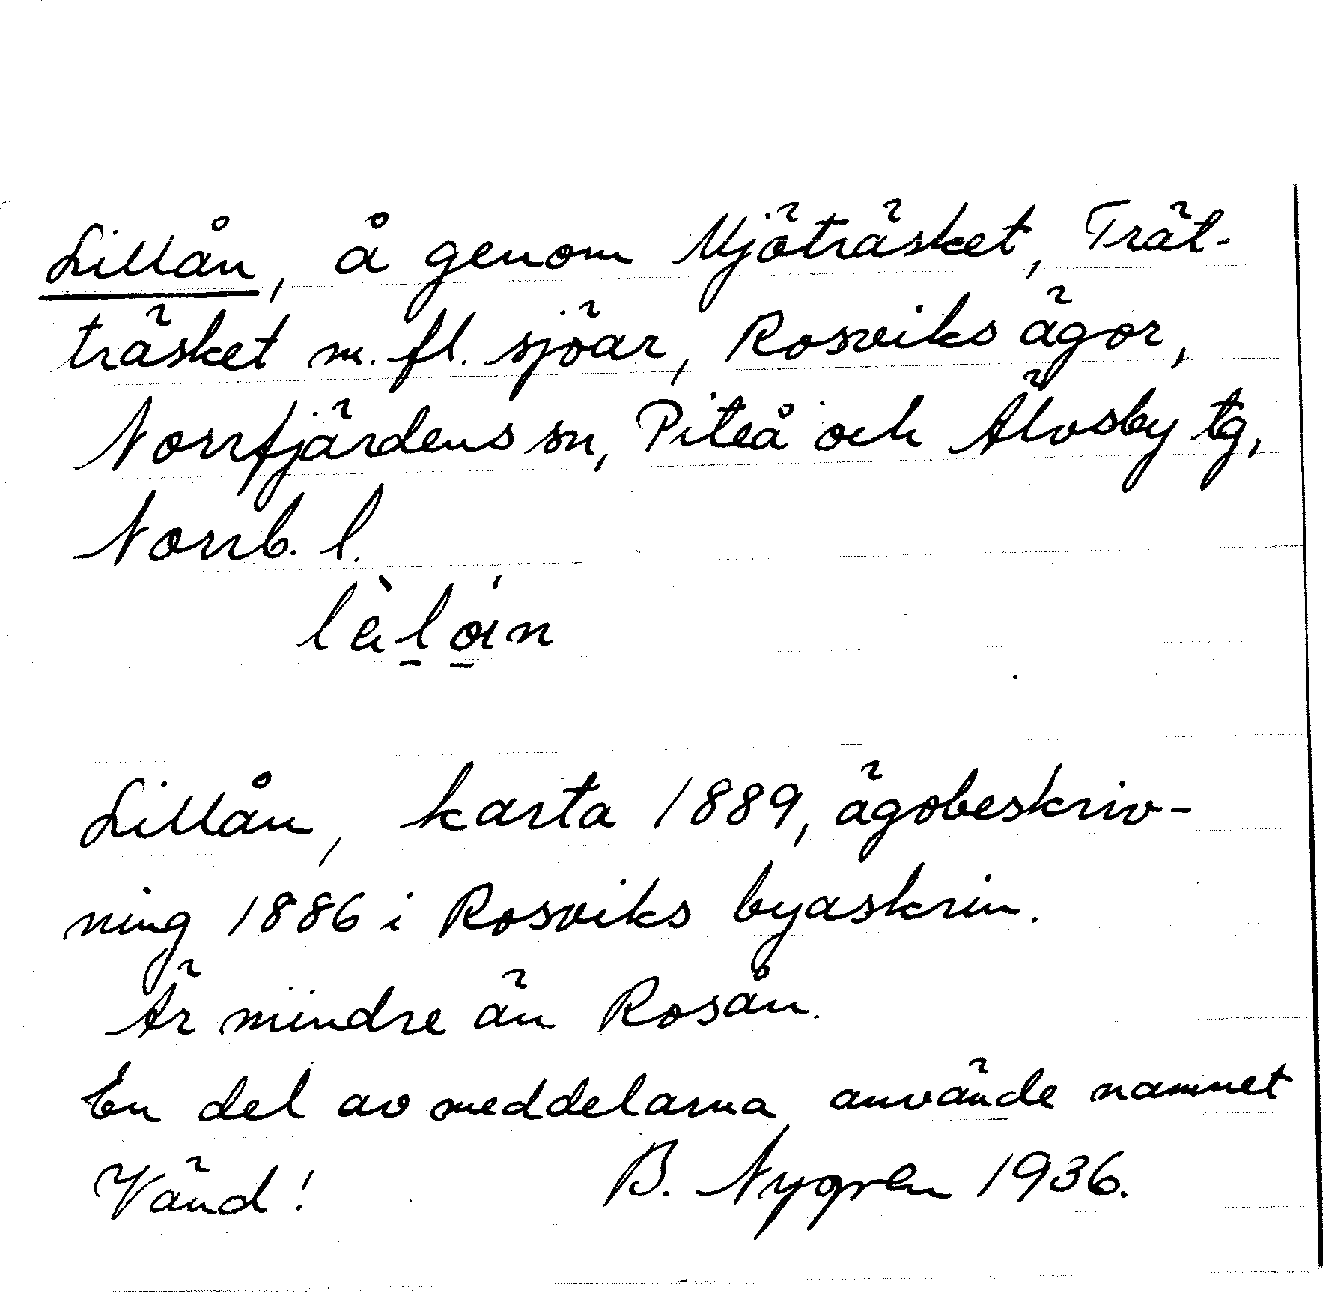 Lillån, å genom Mjöträsket, Trät-
träsket m. fl. sjöar, Rosviks ägor,
Norrfjärdens sn, Piteå och Älvsby tg,
Norrb. l.
Lillån, karta 1889, ägobeskriv-
ning 1886 i Rosviks byaskrin.
Är mindre än Rosån.
En del av meddelarna använde namnet
Vänd! B. Nygren 1936.